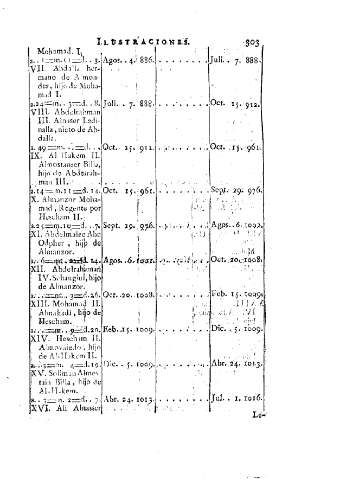 ILUSTRACIONES. 303
Mohamad. I.
Agos. 4. 886. Juli. 7. 888.
VII. Abdalla her-
mano de Almon-
dar, hijo de Moha-
mad I.
a.24=m. 3=d.. 8. Juli.. 7. 888. Oct. 15. 912.
VIII. Abdelrahman
III. Alnasser Ledi-
nalla, nieto de Ab-
dalla.
a. 49=m. Oct. 15. 912. Oct. 15. 961.
IX. Al Hakem II.
Almostanser Billa,
hijo de Abderah-
man III.
a.14=m.11=d. 14. Oct. 15. 961. Sept. 29. 976.
X. Almanzor Moha-
mad, Regente por
Hescham II.
a.25=m.10=d..7. Sept. 29. 976. Agos.. 6. 1002.
XI. Abdelmalec Abu
hijo de
Almanzor.
a.. 6=m.. 2=d. 14. Agos. 6. 1002. Oct. 20. 1008.
XII. Abdelrahman
IV. hijo de
Almanzor.
3=d.26. Oct. 20. 1008. Feb. 15. 1009.
XIII. Mohamad II.
Almahadi, hijo de
Hescham.
9=d.20. Feb. 15. 1009. Dic.. 5. 1009.
XIV. Hescham II.
hijo
de Al-Hakem II.
4=d.19. Dic.. 5. 1009. Abr. 24. 1013.
XV. Soliman Almos-
tain Billa, hijo de
Al-Hakem.
a.. 3=m. 2=d.. 7. Abr. 24. 1013. Jul.. 1. 1016.
XVI. Ali Alnasser
Le-